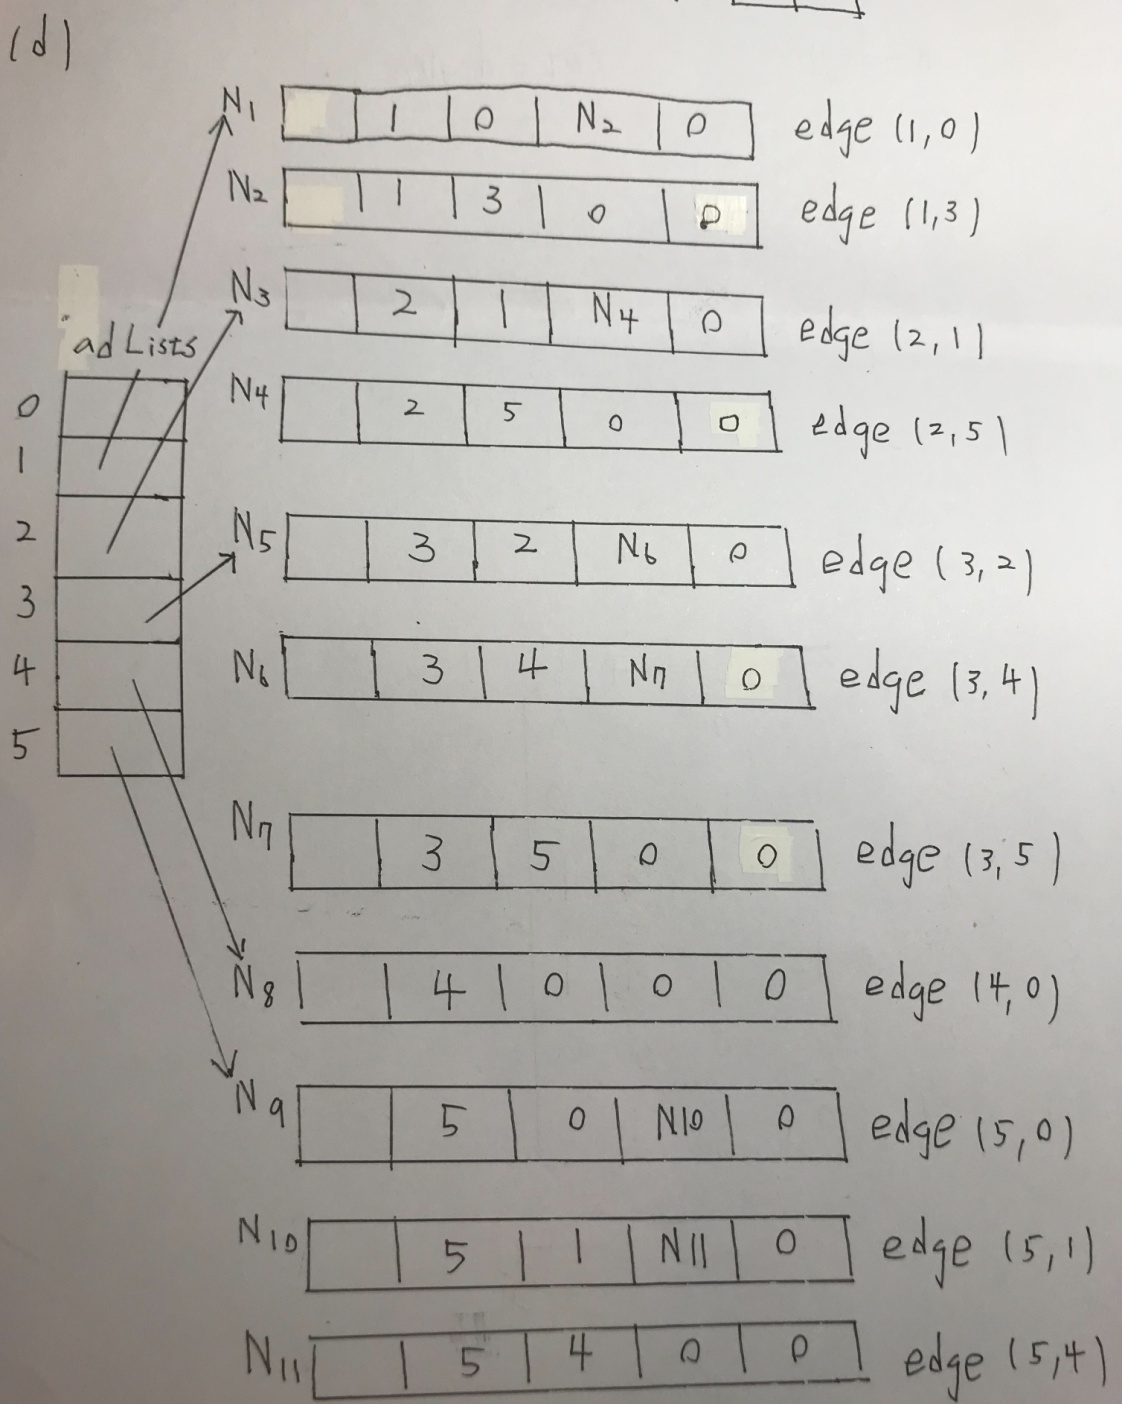 (d)
N1 1 0 N2 0 edge (1,0)
N2 1 3 0 0 edge (1,3)
N3 2 1 N4 0 edge (2,1)
ad Lists
0
N4 2 5 0 0 edge (2,5)
1
2
N5 3 2 N6 0 edge (3,2)
3
4
N6 3 4 N7 0 edge (3,4)
5
N7 3 5 0 0 edge (3,5)
N8 4 0 0 0 edge (4,0)
N9 5 0 N10 0 edge (5,0)
N10 5 1 N11 0 edge (5,1)
N11 5 4 0 0 edge (5,4)